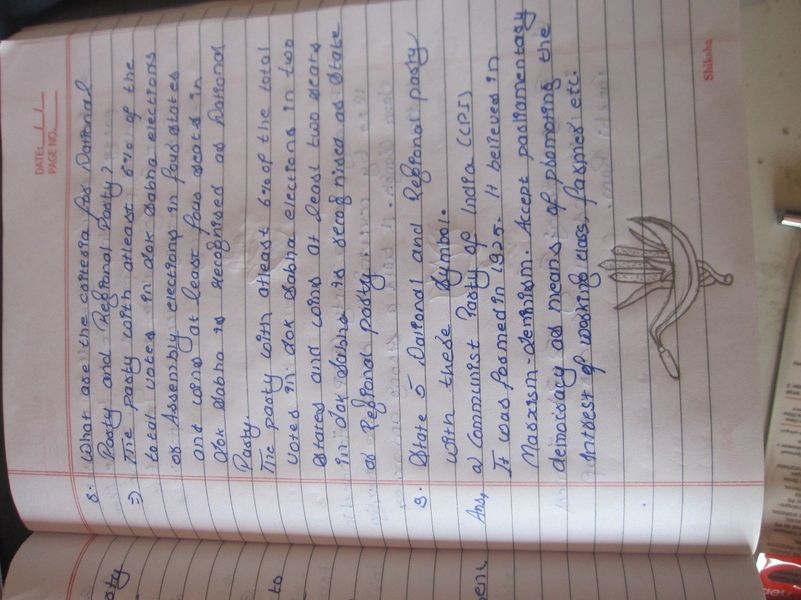 DATE: / /
PAGE NO.
8. What are the criteria for National
Party and Regional Party?
⇒ The party with atleast 6% of the
total votes in Lok Sabha elections
or Assembly elections in four states
and wins at least four seats in
Lok Sabha is recognised as National
Party.
The party with atleast 6% of the total
votes in Lok Sabha elections in two
states and wins at least two seats
in Lok Sabha is recognised as state
or Regional party.
9. State 5 National and Regional party
with these symbol.
Ans, a) Communist Party of India (CPI)
It was formed in 1925. It believes in
Marxism-leninism. Accept parliamentary
democracy as means of promoting the
intrest of working class, farmers etc.
Shiksha
to